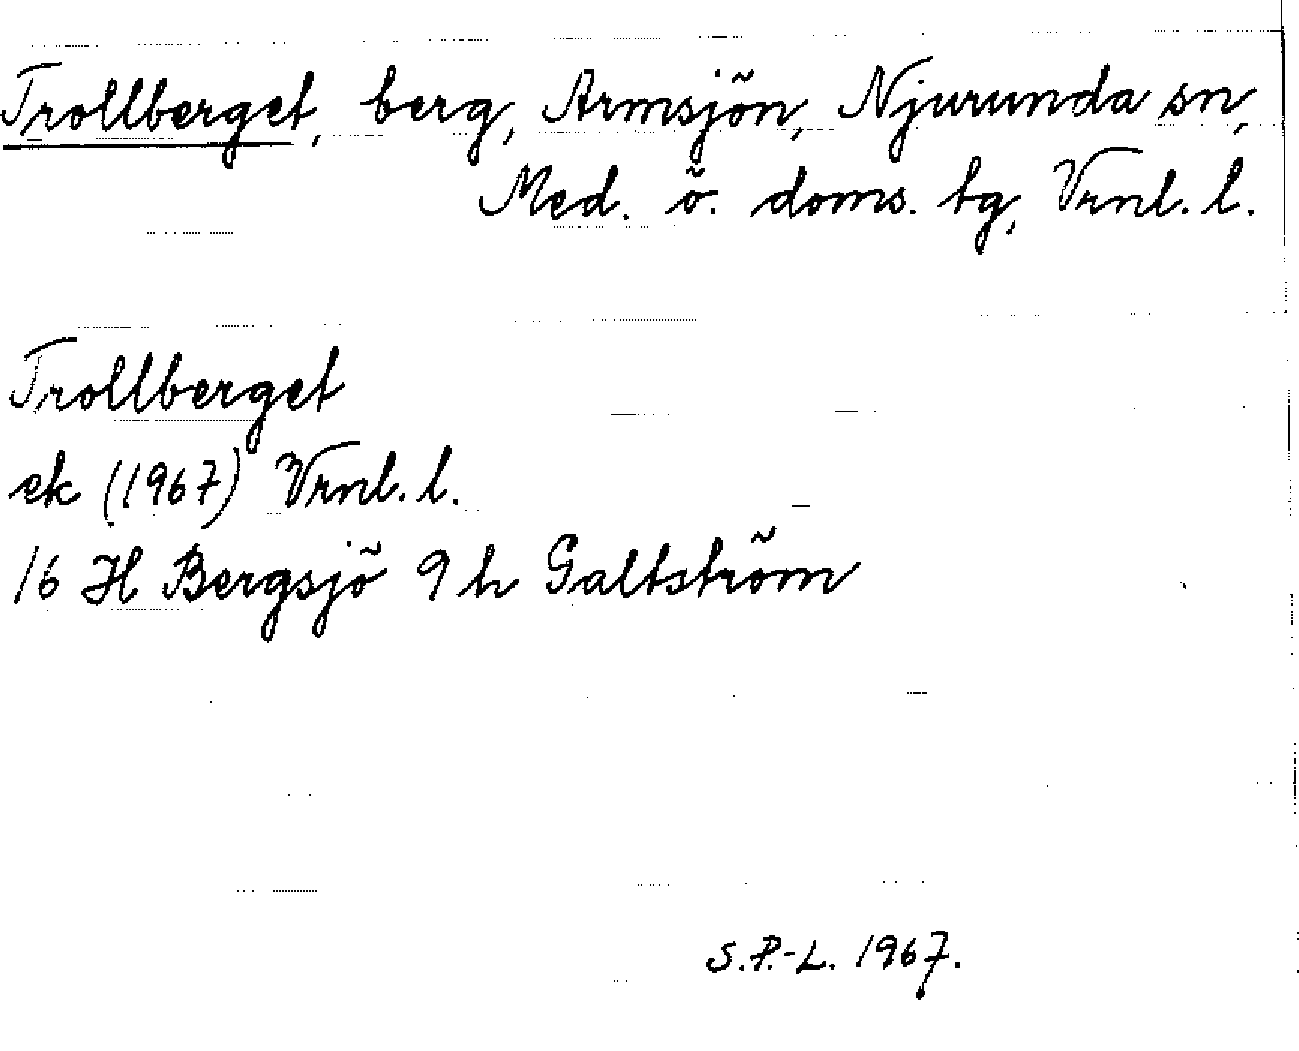 Trollberget, berg, Armsjön, Njurunda sn,
Med. ö. doms. tg, Vrnl. l.
Trollberget
ek (1967) Vrnl. l.
16 H Bergsjö 9 h Galtström
S.P.-L. 1967.